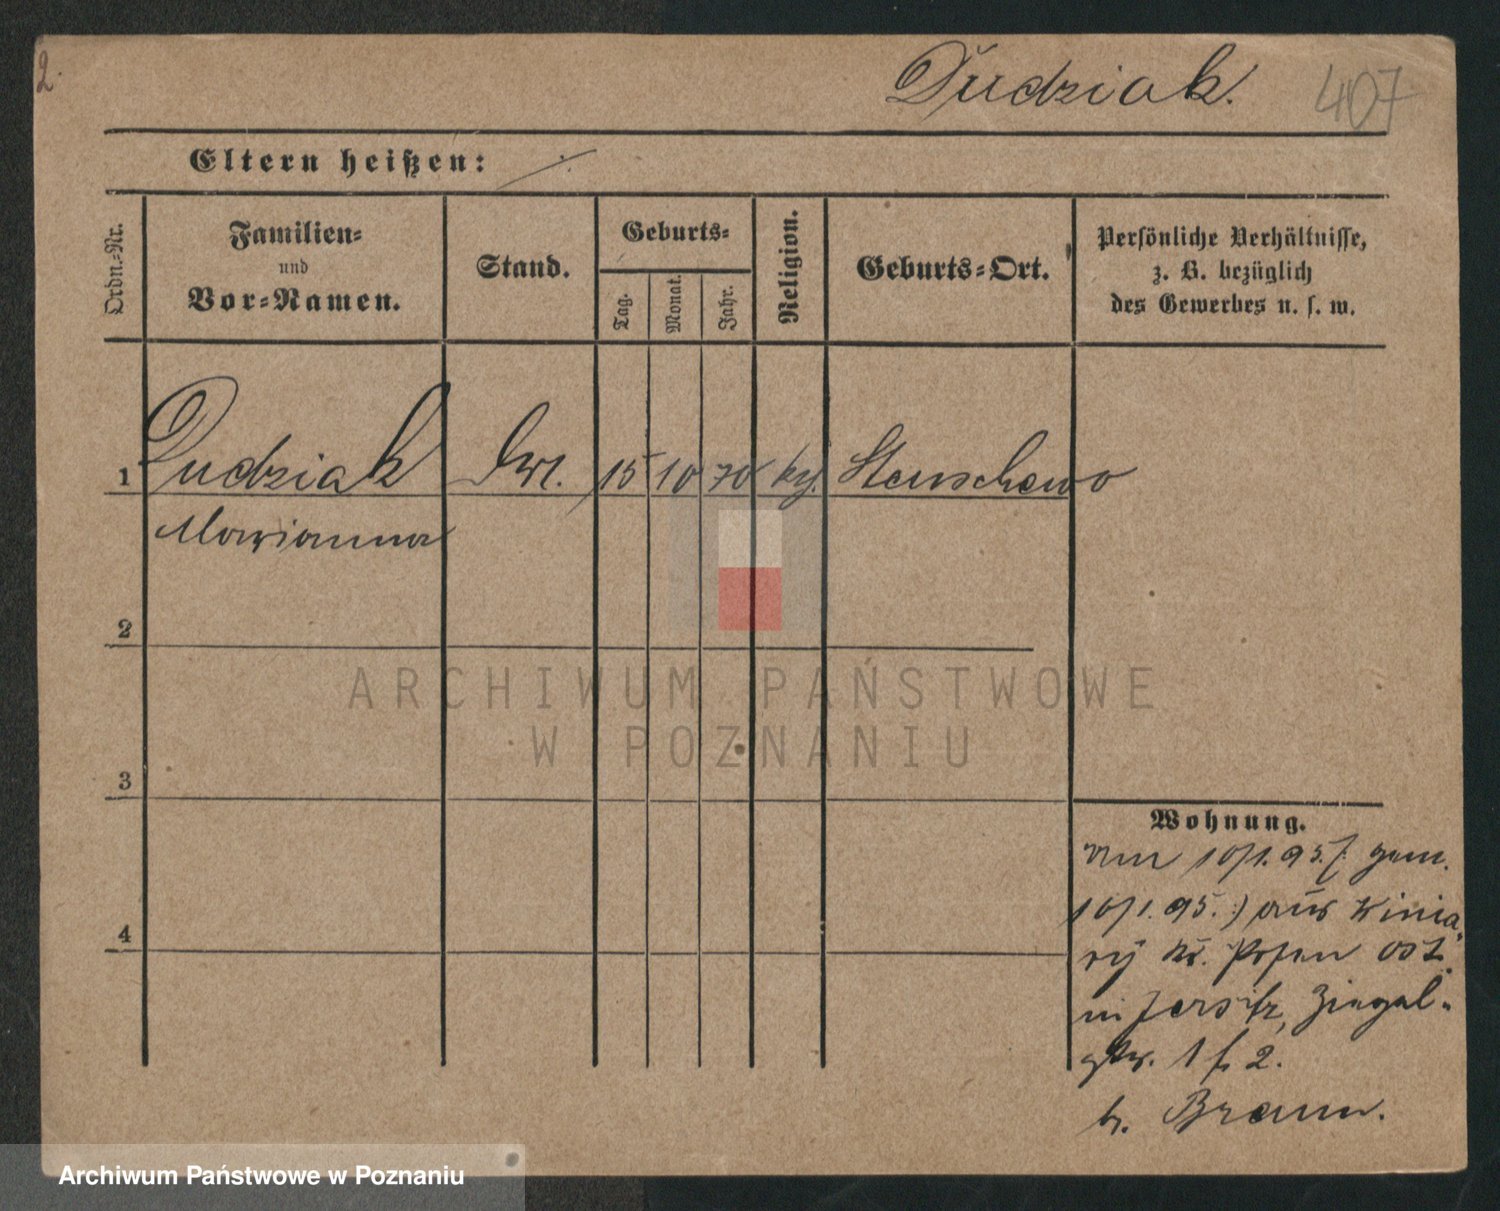 2.
Dudziak. 407
Eltern heißen:
Ordn.-Nr.
Familien-
und
Vor-Namen.
Stand.
Geburts-
Tag.
Monat.
Jahr.
Religion.
Geburts-Ort.
Persönliche Verhältnisse,
z. B. bezüglich
des Gewerbes u. s. w.
1 Dudziak 15 10 70 Stenschewo
Marianna
2
3
4
Wohnung.
am 10/1.95. (: gem.
10/1.95. :) aus Winia-
ry Kr. Posen Ost.
in Jersitz, Ziegel-
str. 1 2.
b. Braun.
ARCHIWUM PAŃSTWOWE
W POZNANIU
Archiwum Państwowe w Poznaniu